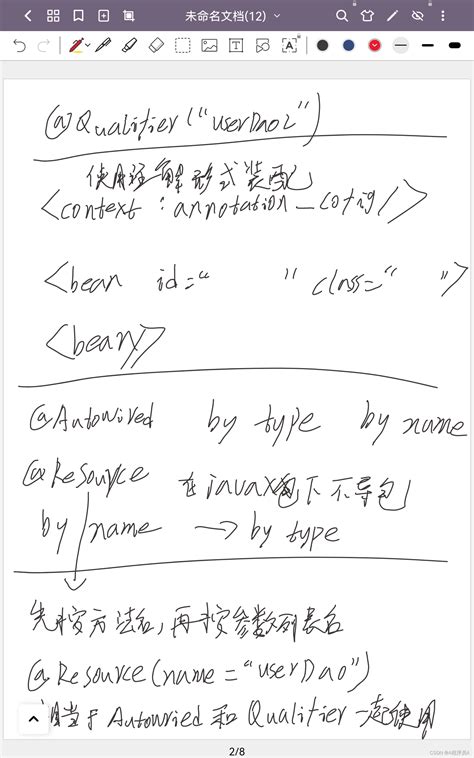 未命名文档(12)
@Qualifier("userDao2")
使用注解形式装配
<context:annotation_cotig/>
<bean id=" " class=" ">
<bean/>
@Autowired by type by name
@Resource 在javax包下不导包
by name → by type
先按方法名,再按参数列表名
@Resource(name="userDao")
相当于Autouried和Qualifier一起使用
2/8